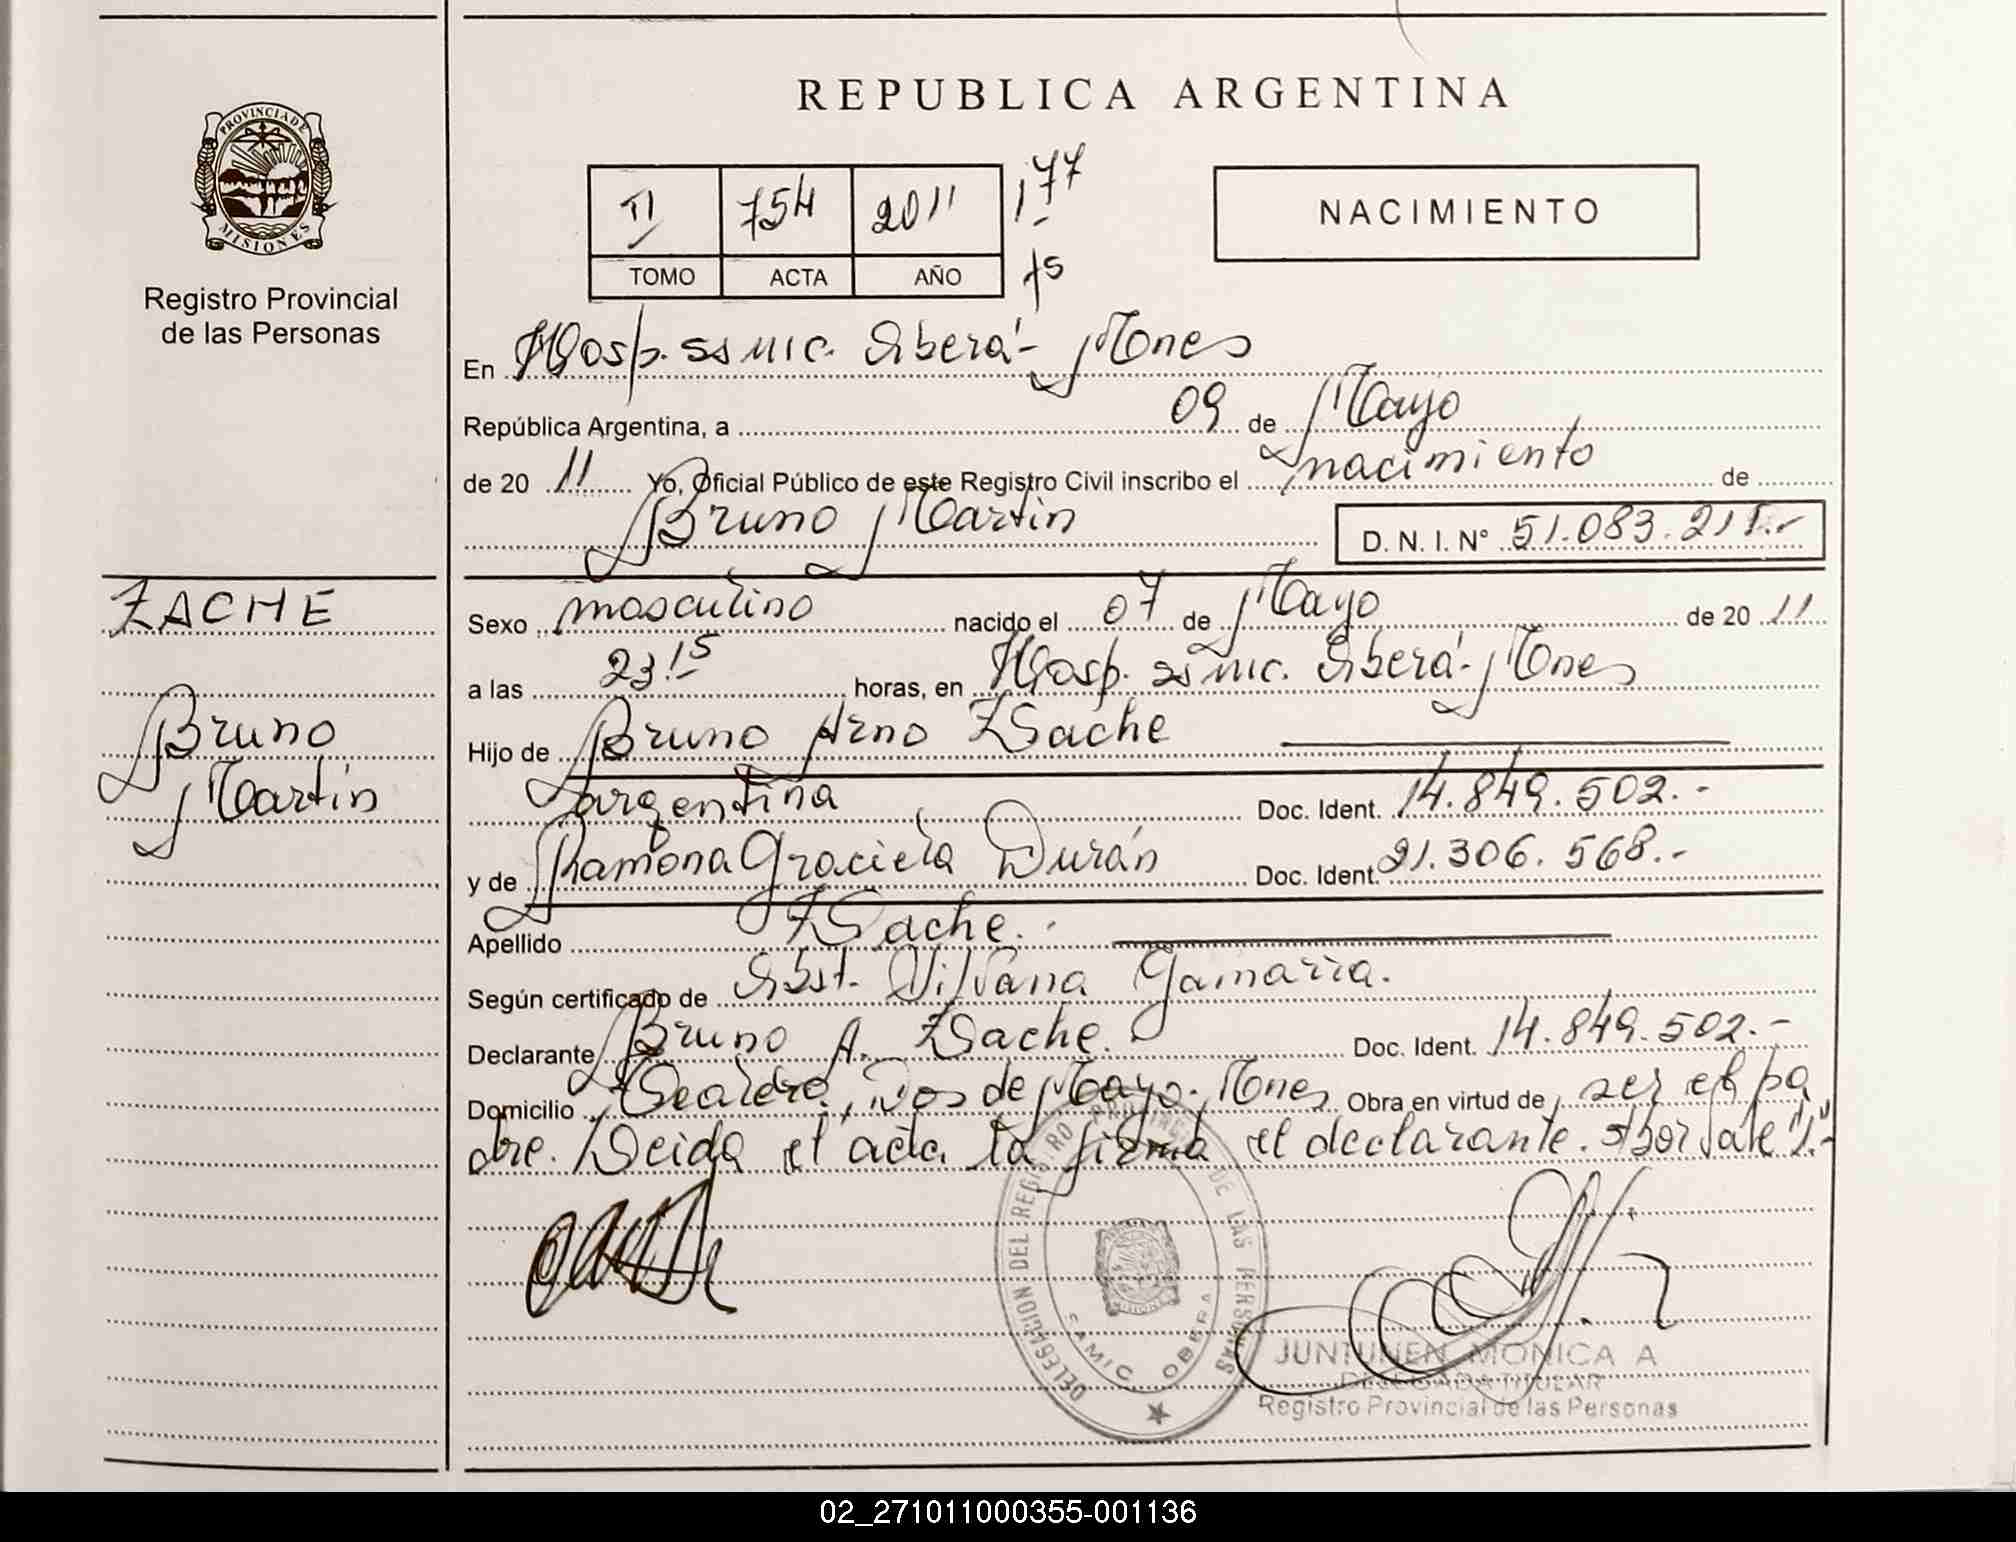 REPUBLICA ARGENTINA
PROVINCIA DE
MISIONES
Registro Provincial
de las Personas
II 754 2011 177
TOMO ACTA AÑO
NACIMIENTO
En Hosp. ss mic. Oberá - Mnes
República Argentina, a 09 de Mayo
de 20 11 Yo, Oficial Público de este Registro Civil inscribo el nacimiento de
Bruno Martin D. N. I. N° 51.083.211.-
ZACHE
Bruno
Martin
Sexo masculino nacido el 07 de Mayo de 20 11
a las 23 15 horas, en Hosp. ss mic. Oberá - Mnes
Hijo de Bruno Arno Zache
argentina Doc. Ident. 14.849.502.-
y de Ramona Graciela Durán Doc. Ident. 21.306.568.-
Apellido Zache.
Según certificado de Obst. Silvana Gamarra.
Declarante Bruno A. Zache. Doc. Ident. 14.849.502.-
Domicilio Dos de Mayo - Mnes Obra en virtud de ser el pa
dre. Leida el acta la firma el declarante.
DELEGACION DEL REGISTRO PROVINCIAL DE LAS PERSONAS
MISIONES
SAMIC OBERA
JUNTUNEN MONICA A
DELEGADA TITULAR
Registro Provincial de las Personas
02_271011000355-001136